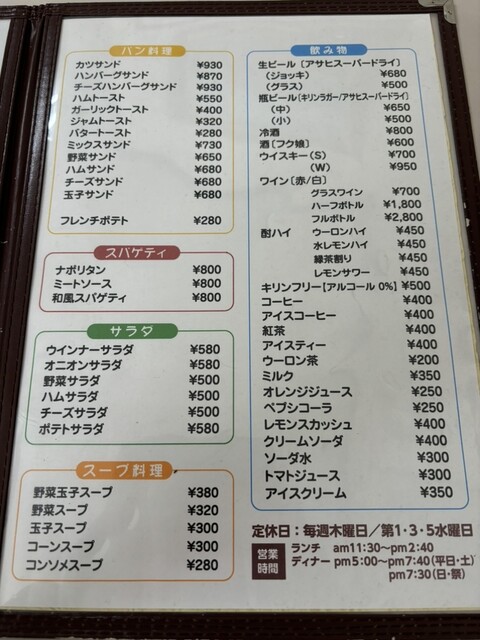 パン料理
カツサンド ¥930
ハンバーグサンド ¥870
チーズハンバーグサンド ¥930
ハムトースト ¥550
ガーリックトースト ¥400
ジャムトースト ¥320
バタートースト ¥280
ミックスサンド ¥730
野菜サンド ¥650
ハムサンド ¥680
チーズサンド ¥680
玉子サンド ¥680
フレンチポテト ¥280
スパゲティ
ナポリタン ¥800
ミートソース ¥800
和風スパゲティ ¥800
サラダ
ウインナーサラダ ¥580
オニオンサラダ ¥580
野菜サラダ ¥500
ハムサラダ ¥500
チーズサラダ ¥500
ポテトサラダ ¥580
スープ料理
野菜玉子スープ ¥380
野菜スープ ¥320
玉子スープ ¥300
コーンスープ ¥300
コンソメスープ ¥280
飲み物
生ビール［アサヒスーパードライ］
（ジョッキ） ¥680
（グラス） ¥500
瓶ビール［キリンラガー/アサヒスーパードライ］
（中） ¥650
（小） ¥500
冷酒 ¥800
酒［フク娘］ ¥600
ウイスキー（S） ¥700
（W） ¥950
ワイン［赤/白］
グラスワイン ¥700
ハーフボトル ¥1,800
フルボトル ¥2,800
酎ハイ ウーロンハイ ¥450
水レモンハイ ¥450
緑茶割り ¥450
レモンサワー ¥450
キリンフリー［アルコール 0%］ ¥500
コーヒー ¥400
アイスコーヒー ¥400
紅茶 ¥400
アイスティー ¥400
ウーロン茶 ¥200
ミルク ¥350
オレンジジュース ¥250
ペプシコーラ ¥250
レモンスカッシュ ¥400
クリームソーダ ¥400
ソーダ水 ¥300
トマトジュース ¥300
アイスクリーム ¥350
定休日：毎週木曜日／第1・3・5水曜日
営業時間 ランチ am11:30〜pm2:40
ディナー pm5:00〜pm7:40(平日・土)
pm7:30(日・祭)